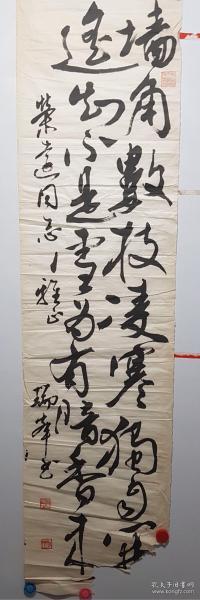 墙角數枝凌寒獨自开
遥知不是雪为有暗香来
荣远同志雅正
瑞峰书
孔夫子旧书网